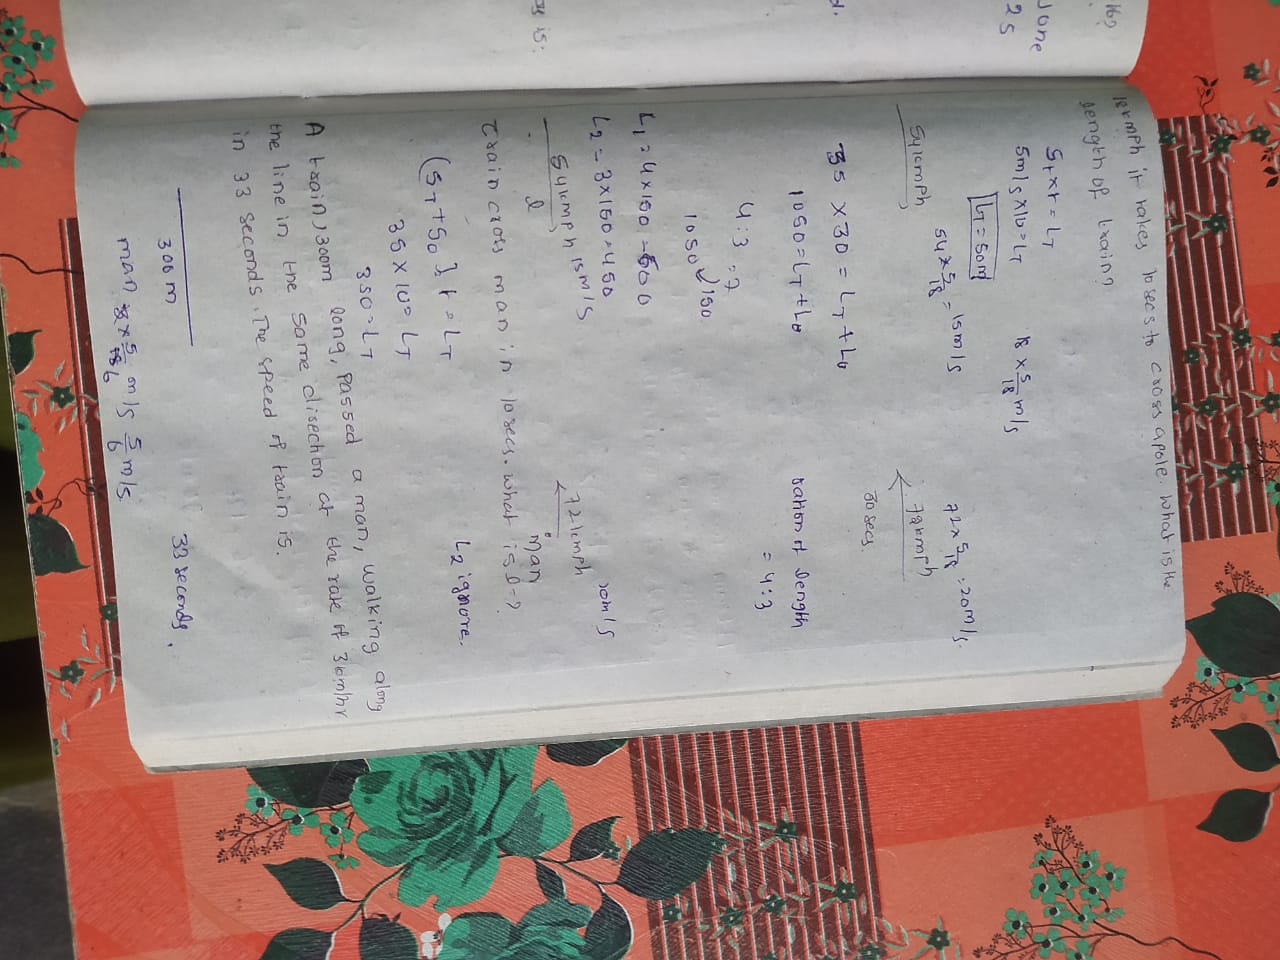 18kmph it takes 10secs to cross a pole. what is the
length of train?
ST x t = LT
5m/s x 10 = LT
18 x 5/18 m/s
LT = 50m
54 x 5/18 = 15m/s
72 x 5/18 = 20m/s.
54kmph
72kmph
30secs.
35 x 30 = LT + L0
1050 = LT + L0
ration of length
= 4:3
4:3 = 7
1050 150
L1 = 4 x 150 = 600
L2 = 3 x 150 = 450
54kmph 15m/s
l
72kmph 20m/s
man
train cross man in 10secs. what is l = ?
L2 ignore.
(ST + S0) t = LT
35 x 10 = LT
350 = LT
A train, 300m long, passed a man, walking along
the line in the same disection at the rate of 3km/hr
in 33 seconds. The speed of train is.
300m
33 seconds.
man, 3 x 5/18 6 m/s 5/6 m/s
16?
Jone
25
d.
is: